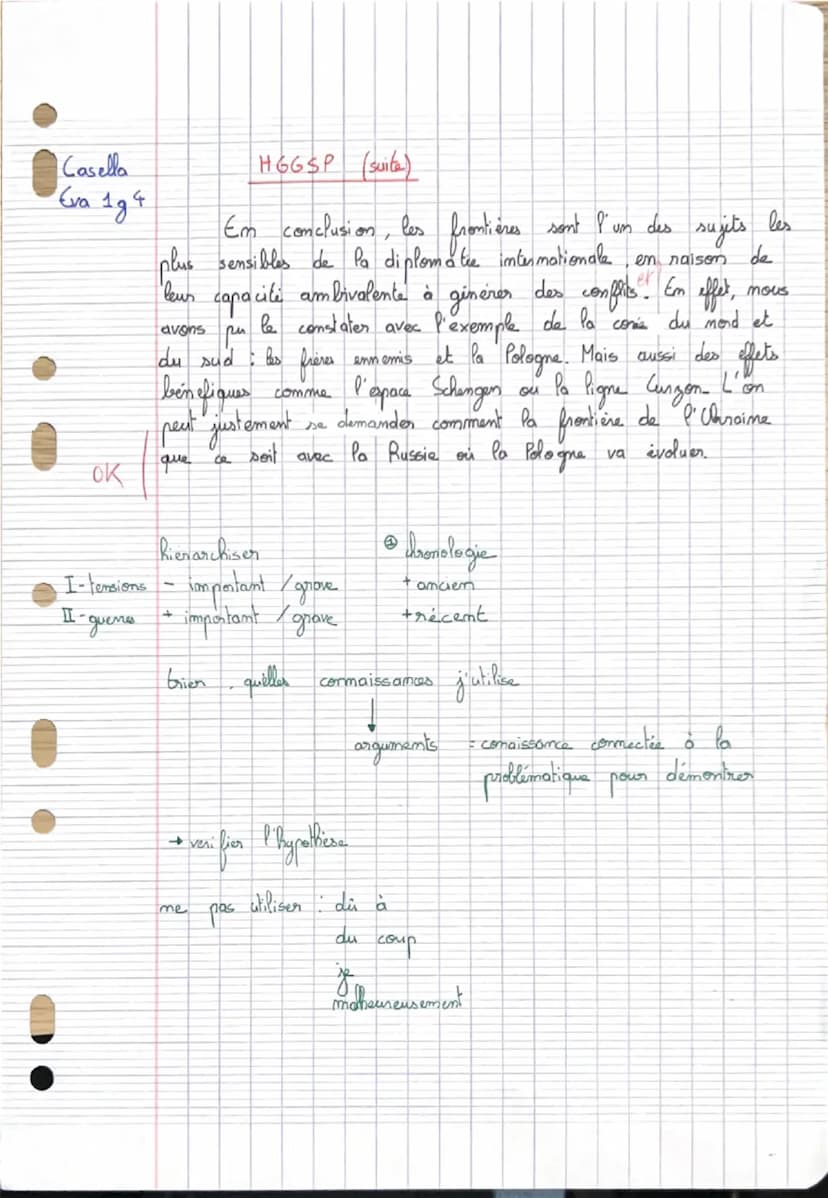 Casella
Eva 1g4
HGGSP (suite)
En conclusion, les frontières sont l'un des sujets les
plus sensibles de la diplomatie internationale, en raison de
leur capacité ambivalente à générer des conflits. er En effet, nous
avons pu le constater avec l'exemple de la corée du nord et
du sud : les frères ennemis et la Pologne. Mais aussi des effets
bénéfiques comme l'espace Schengen ou la ligne Curzon. L'on
peut justement se demander comment la frontière de l'Ukraine
que ce soit avec la Russie où la Pologne va évoluer.
OK
hierarchiser
I-tensions - important / grave
II-guerres + important / grave
chronologie
+ ancien
+ récent
trier, quelles connaissances j'utilise
↓
arguments = connaissance connectée à la
problématique pour démontrer
→ verifier l'hypothèse
ne pas utiliser : dû à
du coup
je
malheureusement